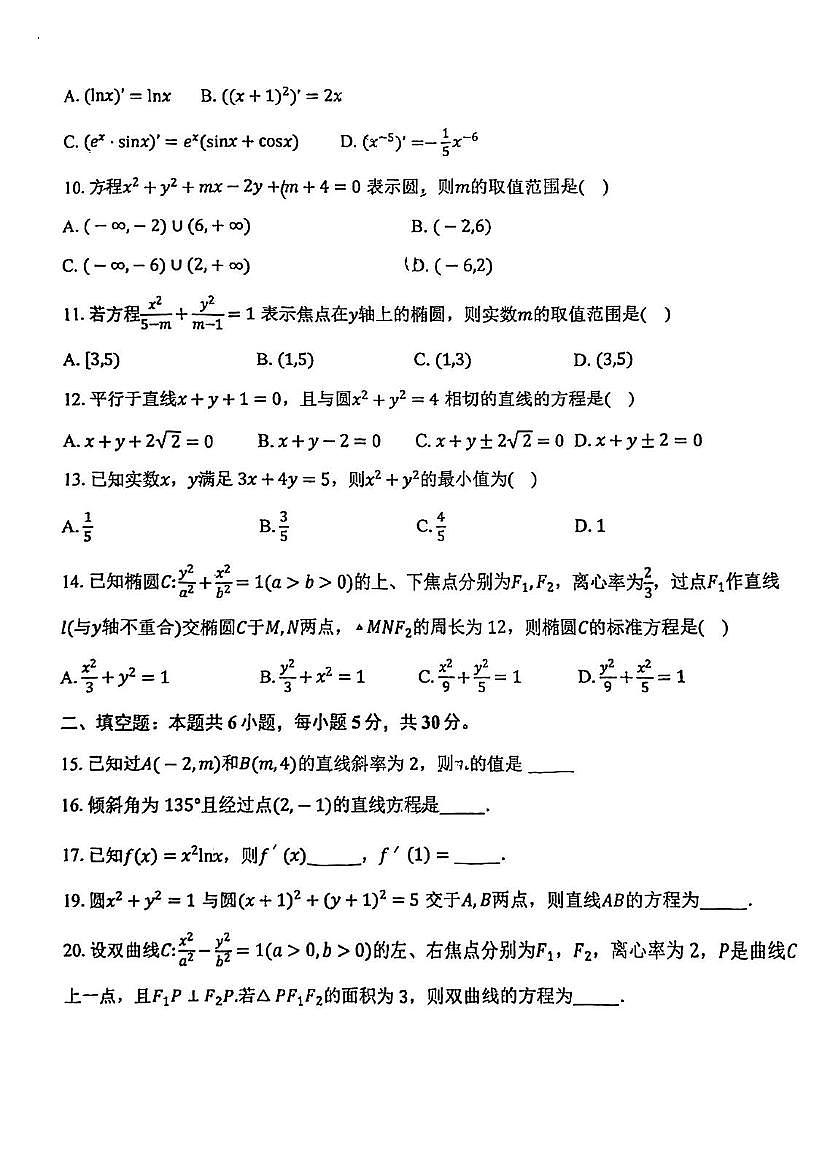 A. (lnx)′ = lnx B. ((x + 1)²)′ = 2x
C. (eˣ · sinx)′ = eˣ(sinx + cosx) D. (x⁻⁵)′ = −1/5 x⁻⁶
10. 方程x² + y² + mx − 2y + m + 4 = 0 表示圆，则m的取值范围是( )
A. (−∞, −2) ∪ (6, +∞) B. (−2,6)
C. (−∞, −6) ∪ (2, +∞) D. (−6,2)
11. 若方程x²/(5−m) + y²/(m−1) = 1 表示焦点在y轴上的椭圆，则实数m的取值范围是( )
A. [3,5) B. (1,5) C. (1,3) D. (3,5)
12. 平行于直线x + y + 1 = 0，且与圆x² + y² = 4 相切的直线的方程是( )
A. x + y + 2√2 = 0 B. x + y − 2 = 0 C. x + y ± 2√2 = 0 D. x + y ± 2 = 0
13. 已知实数x，y满足 3x + 4y = 5，则x² + y²的最小值为( )
A. 1/5 B. 3/5 C. 4/5 D. 1
14. 已知椭圆C: y²/a² + x²/b² = 1(a > b > 0)的上、下焦点分别为F₁, F₂，离心率为2/3，过点F₁作直线
l(与y轴不重合)交椭圆C于M, N两点，▵MNF₂的周长为 12，则椭圆C的标准方程是( )
A. x²/3 + y² = 1 B. y²/3 + x² = 1 C. x²/9 + y²/5 = 1 D. y²/9 + x²/5 = 1
二、填空题：本题共 6 小题，每小题 5 分，共 30 分。
15. 已知过A(−2, m)和B(m, 4)的直线斜率为 2，则 的值是 _____
16. 倾斜角为 135°且经过点(2, −1)的直线方程是_____.
17. 已知f(x) = x²lnx，则f′(x)_____，f′(1) = _____.
19. 圆x² + y² = 1 与圆(x + 1)² + (y + 1)² = 5 交于A, B两点，则直线AB的方程为_____.
20. 设双曲线C: x²/a² − y²/b² = 1(a > 0, b > 0)的左、右焦点分别为F₁，F₂，离心率为 2，P是曲线C
上一点，且F₁P ⊥ F₂P.若△PF₁F₂的面积为 3，则双曲线的方程为_____.